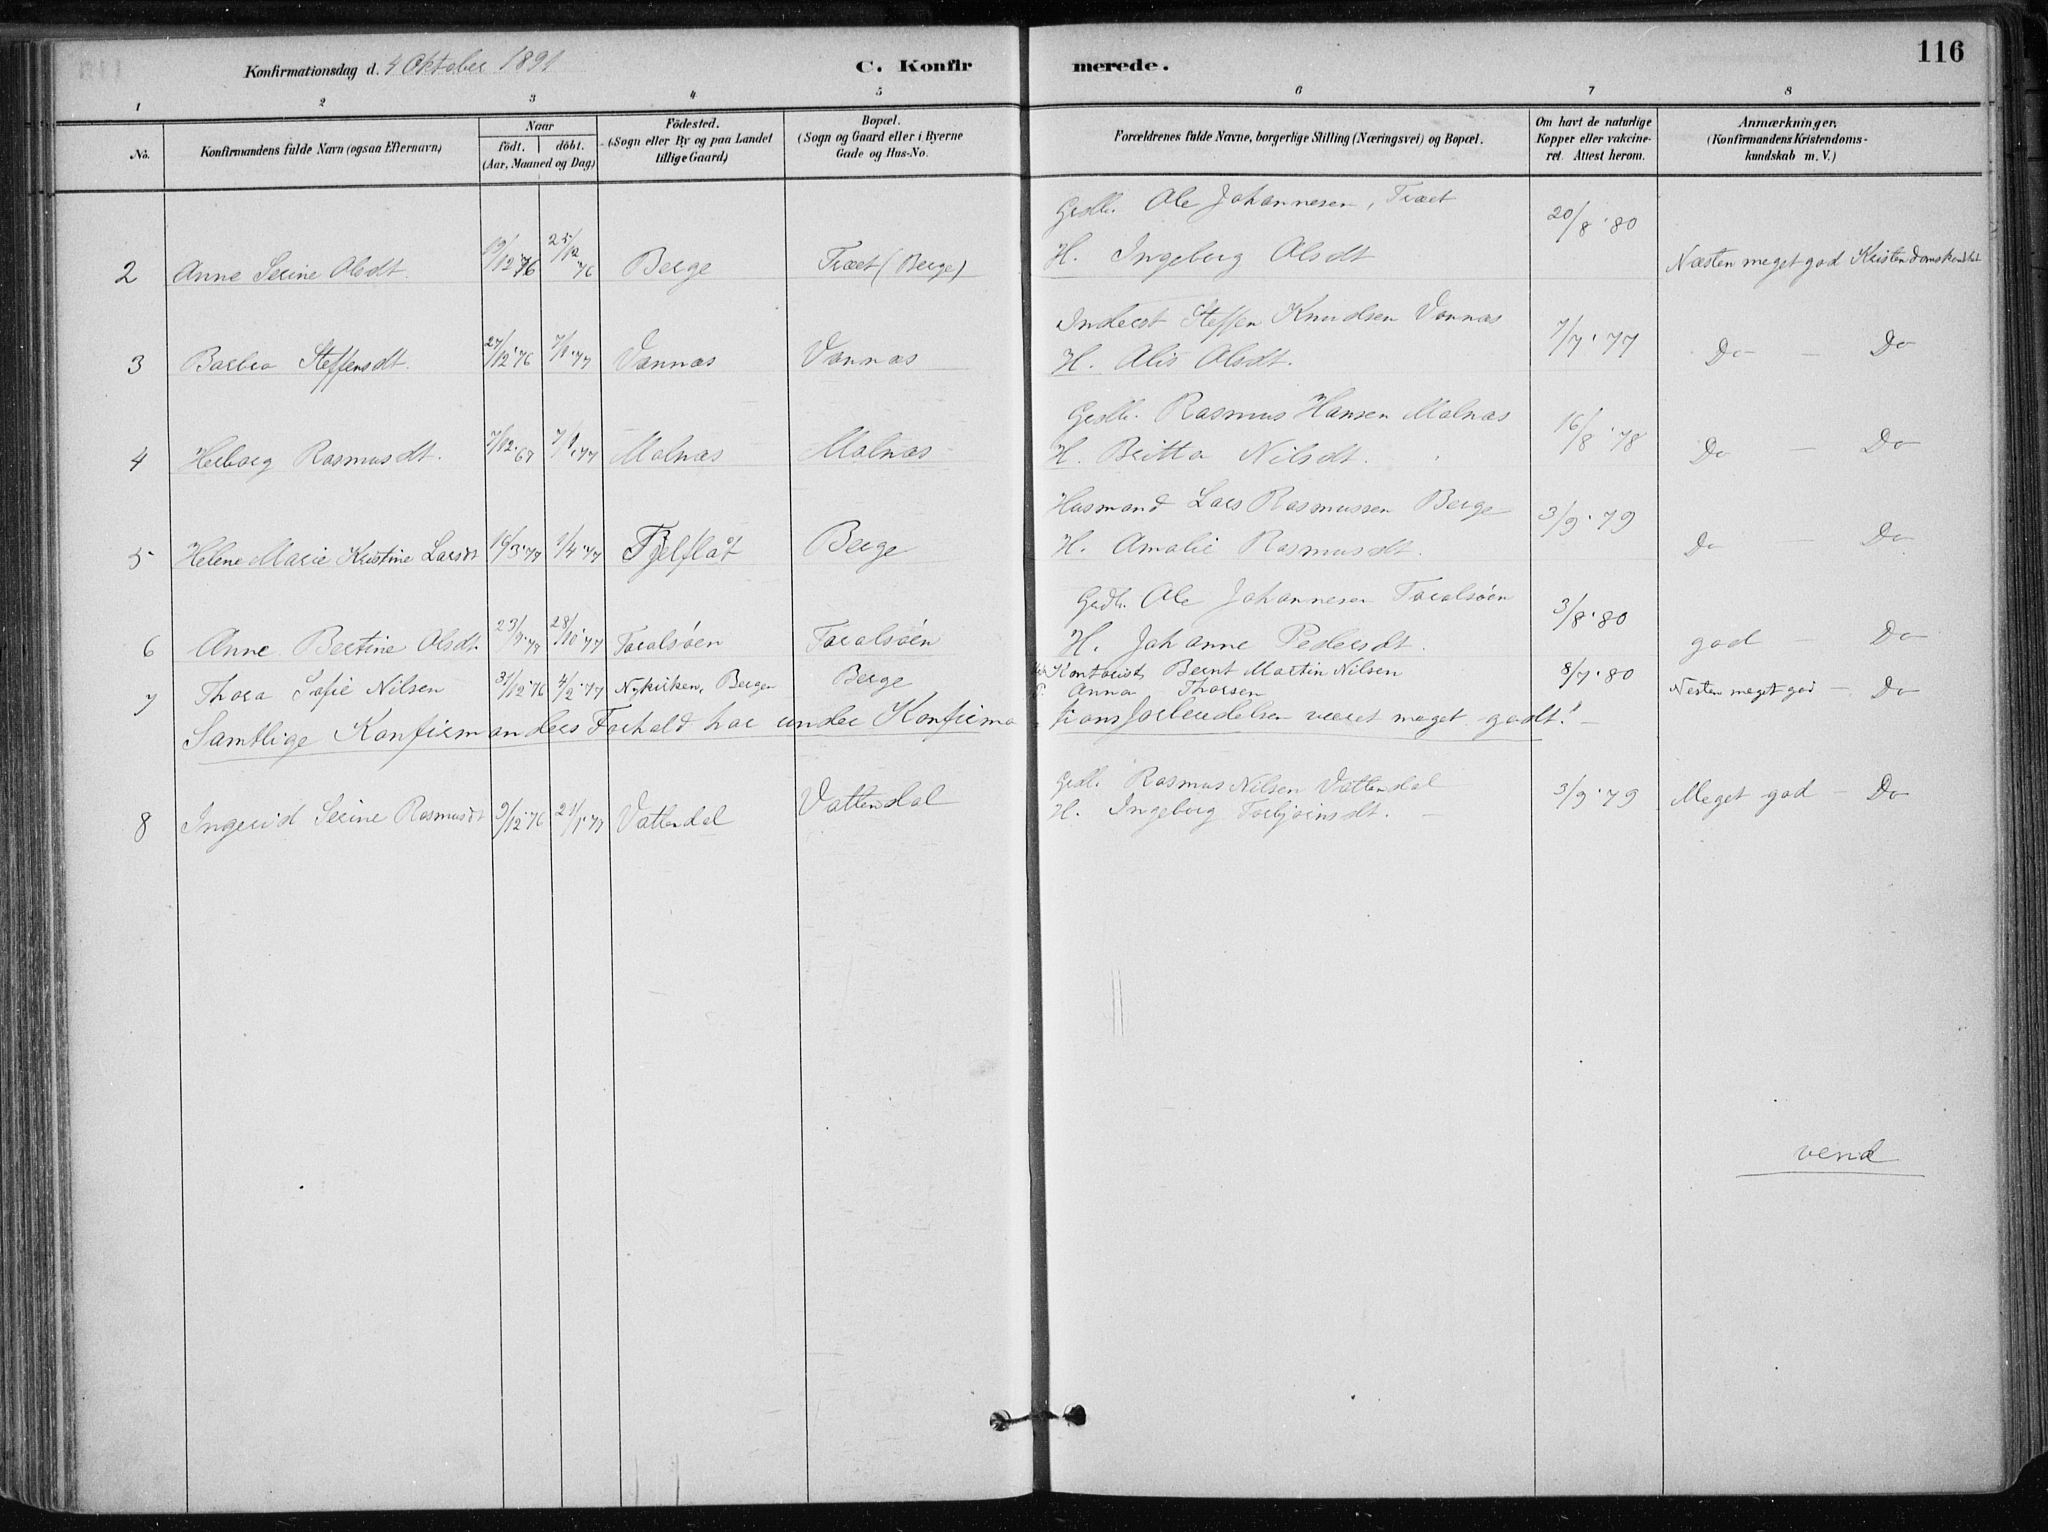 116
Konfirmationsdag d. 4 Oktober 1891 C. Konfirmerede.
1 2 3 4 5 6 7 8
No. Konfirmandens fulde Navn (ogsaa Efternavn) Naar födt. döbt. (Aar, Maaned og Dag) Födested. (Sogn eller By og paa Landet tillige Gaard) Bopæl. (Sogn og Gaard eller i Byerne Gade og Hus-No. Forældrenes fulde Navne, borgerlige Stilling (Næringsvei) og Bopæl. Om havt de naturlige Kopper eller vakcineret. Attest herom. Anmærkninger. (Konfirmandens Kristendomskundskab m. V.)
Gedb. Ole Johannesen, Træet 20/8 '80
2 Anne Serine Olsdt. 19/12 '76 25/12 '76 Berge Træet (Berge) H. Ingeborg Olsdt Næsten meget god Kristendomskundskab
Inderst Steffen Knudsen Vonnas
3 Barbra Steffensdt. 27/12 '76 7/1 '77 Vonnas Vonnas H. Alis Olsdt. 7/7 '77 Do — Do
Gedb. Rasmus Hansen Malnas 16/8 '78
4 Herborg Rasmusdt. 7/1 '77 Malnas Malnas H. Britta Nilsdt. Do — Do
Husmand Lars Rasmussen Berge 3/9 '79
5 Helene Marie Kristine Larsdt 16/3 '77 1/4 '77 Fjelflåt Berge H. Amalie Rasmusdt. Do — Do
Gedb. Ole Johannesen Toralsøen 3/8 '80
6 Anne Bertine Olsdt. 23/9 '77 28/10 '77 Toralsøen Toralsøen H. Johanne Pedersdt. god — Do
Kontorist Bernt Martin Nilsen 8/7 '80
7 Thora Sofie Nilsen 31/12 '76 4/2 '77 Nykirken, Bergen Berge Anna Thorsen Nesten meget god — Do
Samtlige Konfirmanders Forhold har under Konfirmationsforberedelsen været meget godt." —
Gedb. Rasmus Nilsen Vattendal
8 Ingerid Serine Rasmusdt 9/12 '76 21/1 '77 Vattendal Vattendal H. Ingeborg Torbjørnsdt. — 3/9 '79 Meget god — Do
vend